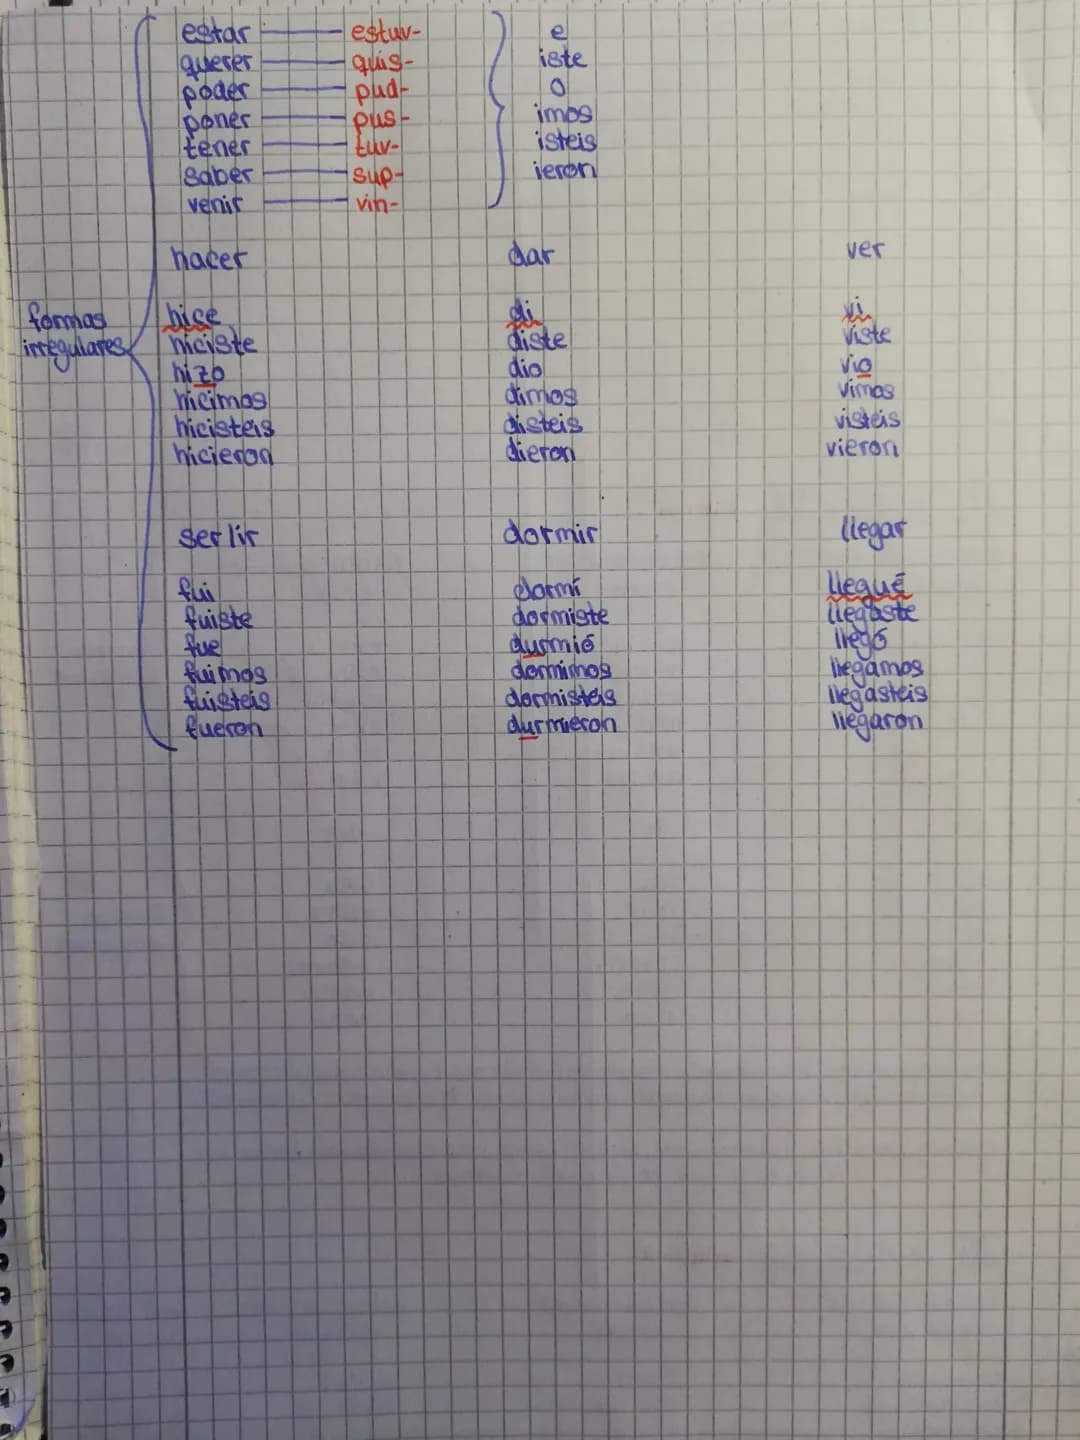 estar — estuv- e
querer — quis- iste
poder — pud- o
poner — pus- imos
tener — tuv- isteis
saber — sup- ieron
venir — vin-
hacer dar ver
formas irregulares
hice di vi
hiciste diste viste
hizo dio vio
hicimos dimos vimos
hicisteis disteis visteis
hicieron dieron vieron
ser/ir dormir llegar
fui dormí llegué
fuiste dormiste llegaste
fue durmió llegó
fuimos dormimos llegamos
fuisteis dormisteis llegasteis
fueron durmieron llegaron